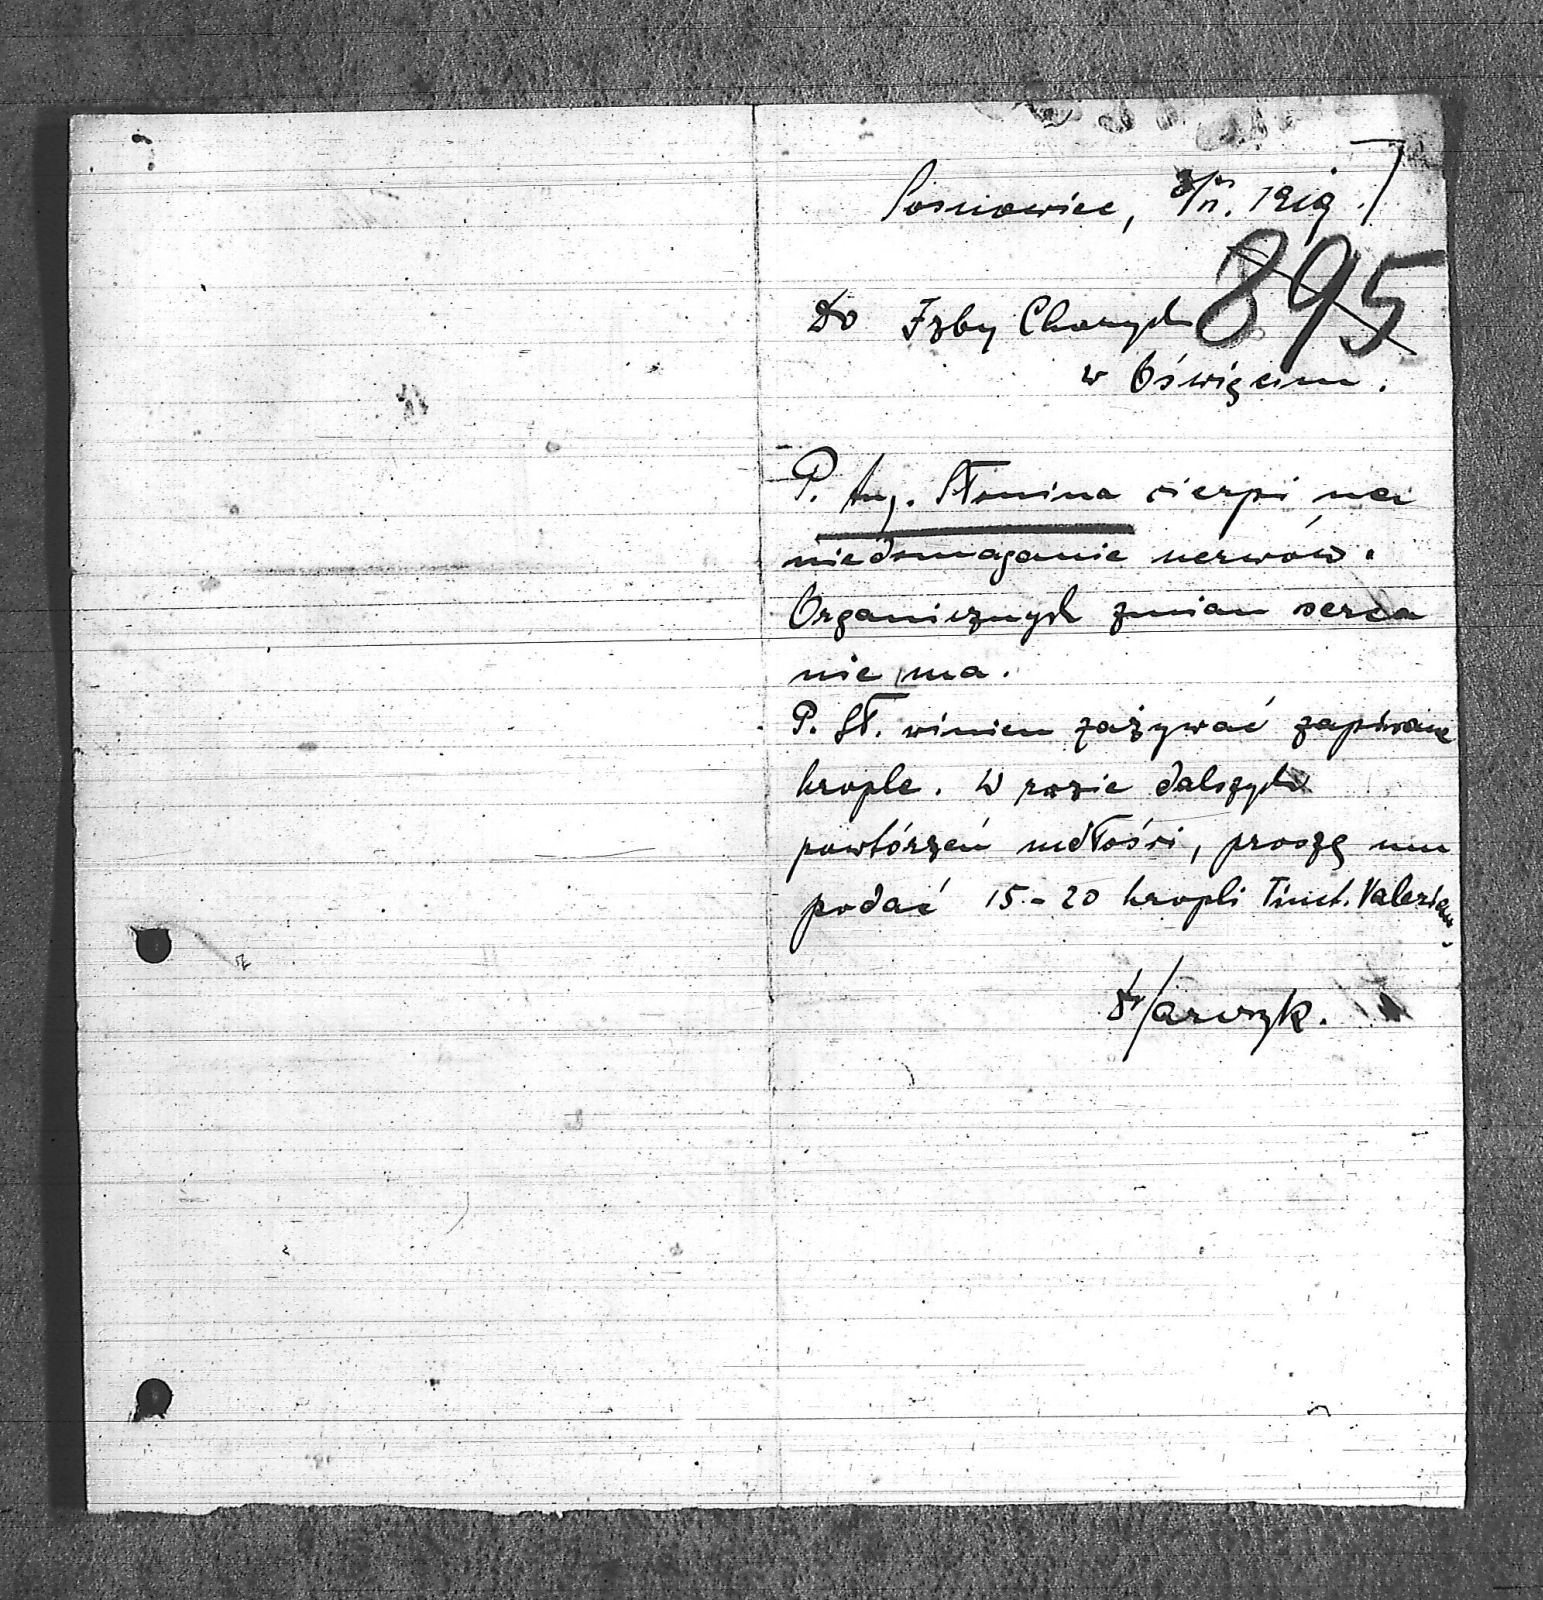 Sosnowiec, 1919
895
Do Izby Chorych
w Oświęcim.
P. Aug. Słonina cierpi na
niedomaganie nerwów.
Organicznych zmian serca
nie ma.
P. Sł. winien zażywać zapisane
krople. W razie dalszych
powtórzeń mdłości, proszę mu
podać 15-20 kropli Tinct. Valerian.
Dr